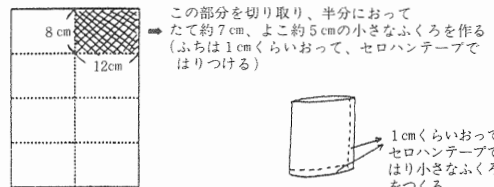 8cm
12cm
この部分を切り取り、半分におって
たて約7cm、よこ約5cmの小さなふくろを作る
(ふちは1cmくらいおって、セロハンテープで
はりつける)
1cmくらいおって
セロハンテープで
はり小さなふくろ
をつくる